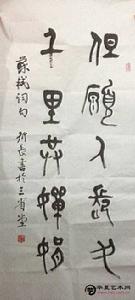 但願人長久
千里共嬋娟
蘇軾詞句 書於三省堂
华夏艺术网